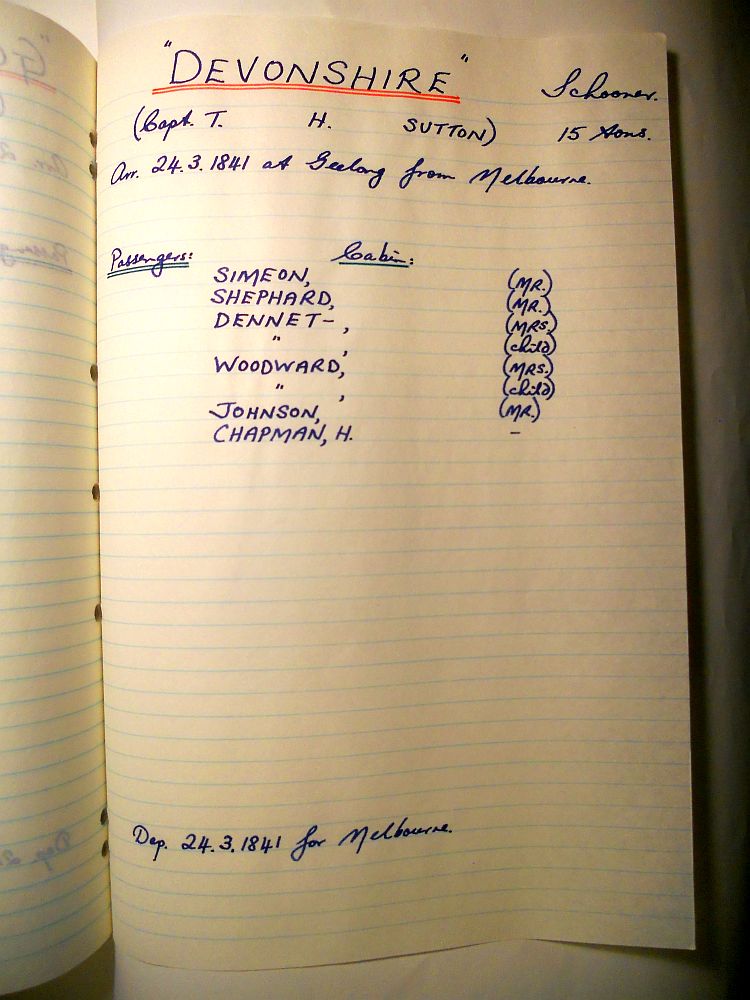 "DEVONSHIRE" Schooner.
(Capt. T. H. SUTTON) 15 tons.
Arr. 24.3.1841 at Geelong from Melbourne.
Passengers: Cabin:
SIMEON, (MR.)
SHEPHARD, (MR.)
DENNET-, (MRS.)
" , (child)
WOODWARD, (MRS.)
" , (child)
JOHNSON, (MR.)
CHAPMAN, H. -
Dep. 24.3.1841 for Melbourne.